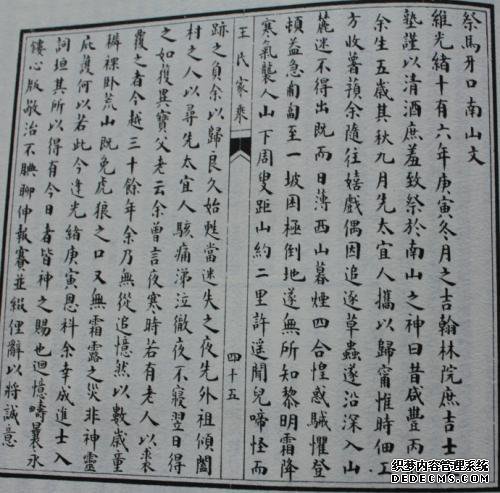 祭馬牙口南山文
維光緒十有六年庚寅冬月之吉翰林院庶吉士
塾謹以清酒庶羞致祭於南山之神曰昔咸豐丙
余生五歲其秋九月先太宜人攜以歸甯惟時佃工
方收薯蕷余隨往嬉戲偶因追逐草蟲遂沿深入山
麓迷不得出既而日薄西山暮煙四合惶惑駴懼登
頓益急匍匐至一坡困極倒地遂無所知黎明霜降
寒氣襲人山下周叟距山約二里許遥聞兒啼怪而
王氏家乘
四十五
跡之負余以歸良久始甦當迷失之夜先外祖傾闔
村之人以尋先太宜人駭痛涕泣徹夜不寢翌日得
之如獲異寶父老云余曾言夜寒時若有老人以裘
覆之者今越三十餘年余乃無從追憶然以數歲童
稚裸卧荒山既免虎狼之口又無霜露之災非神靈
庇護何以若此今逢光緒庚寅恩科余幸成進士入
詞垣其所以得有今日者皆神之賜也迴憶疇曩永
鏤心版敬治不腆聊伸報賽並綴俚辭以將誠意
织梦网络内容管理系统
www.dedecms.com